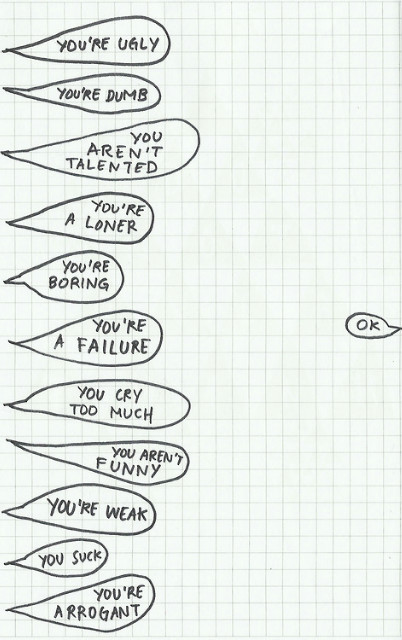 YOU'RE UGLY
YOU'RE DUMB
YOU
AREN'T
TALENTED
YOU'RE
A LONER
YOU'RE
BORING
YOU'RE
A FAILURE
OK
YOU CRY
TOO MUCH
YOU AREN'T
FUNNY
YOU'RE WEAK
YOU SUCK
YOU'RE
ARROGANT